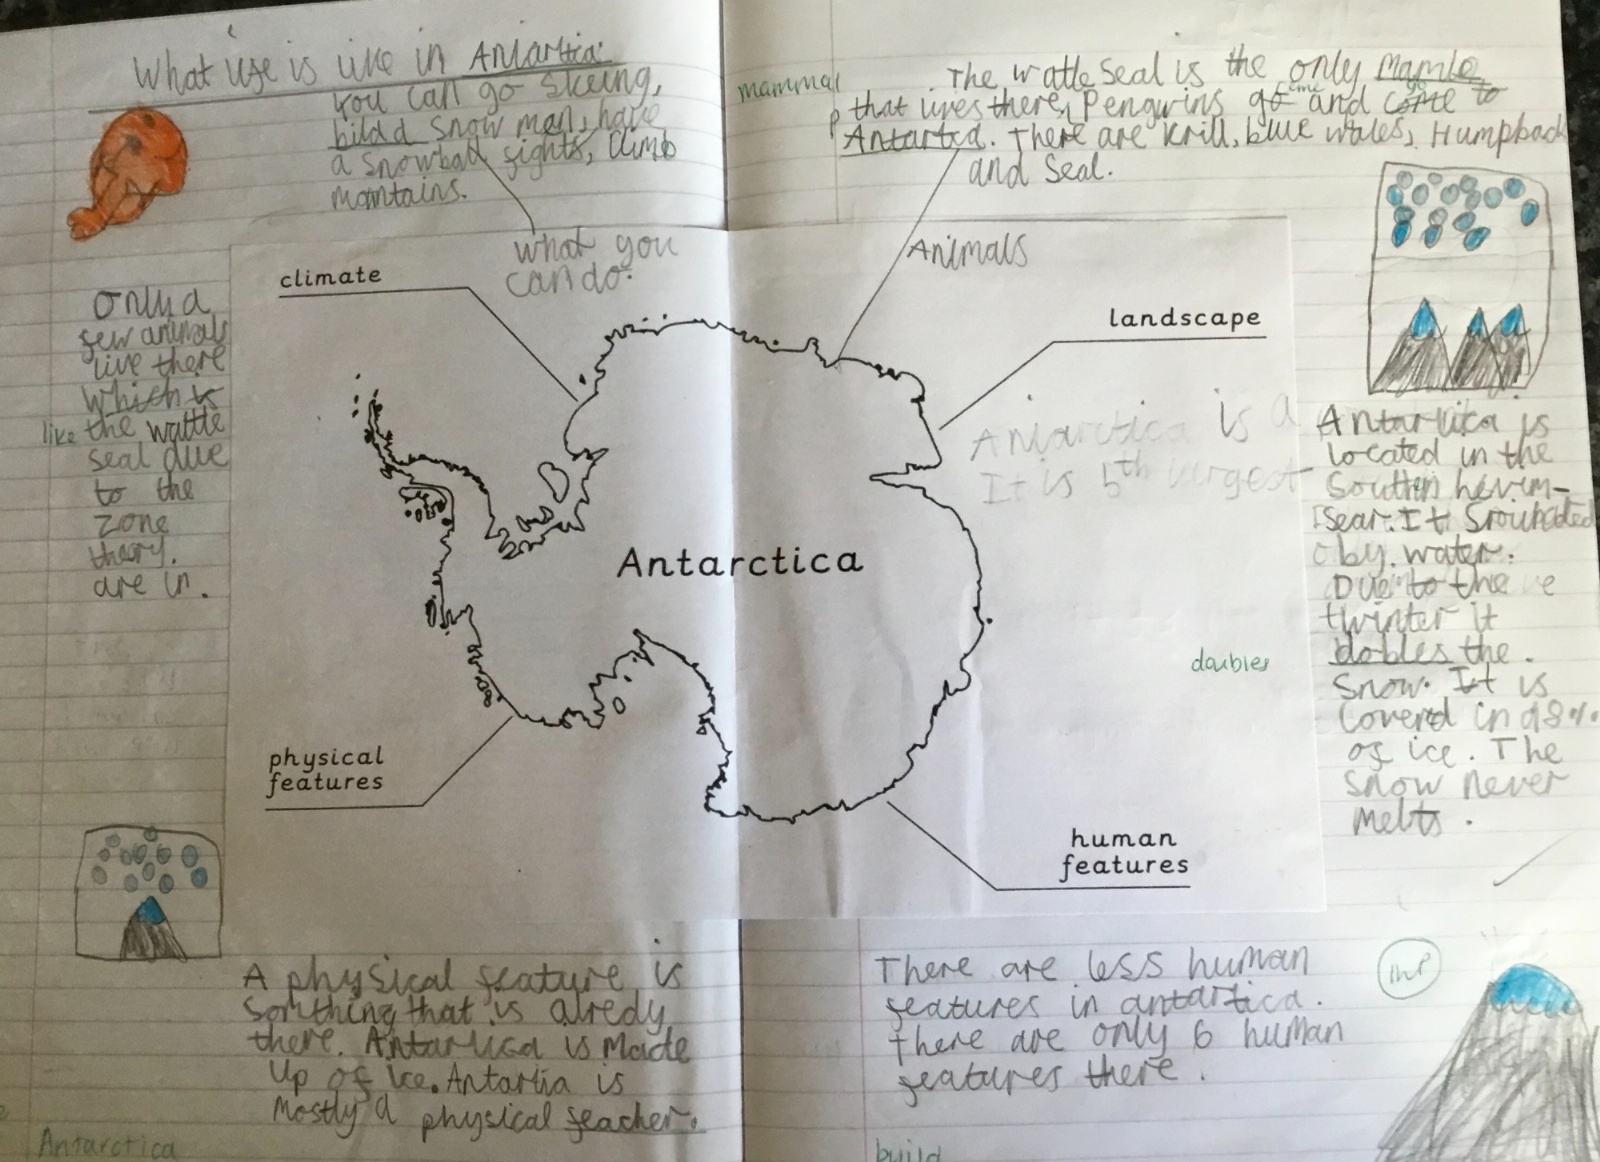 What life is like in Antartia.
You can go skeing,
bild a snow man, have
a snowball fights, climb
mantains.
mammal
The wattle Seal is the only Mamle
that lives there, Penguins go and come to
Antartica. There are krill, blue wales, Humpback
and Seal.
what you
can do.
Animals
climate
landscape
Only a
few animals
live there
which is
like the wattle
seal due
to the
zone
theory.
are in.
Antarctica is a
It is 5th largest
Antartica is
located in the
Southn hevim-
sear. It srouneded
by water.
Due to the
winter it
dobles the
snow. It is
coverd in 98%
of ice. The
snow never
melts.
Antarctica
doubles
physical
features
human
features
A physical feature is
somthing that is alredy
there. Antartica is made
up of ice. Antartia is
mostly a physical feacher.
There are less human
features in antartica.
there are only 6 human
features there.
Antarctica
build